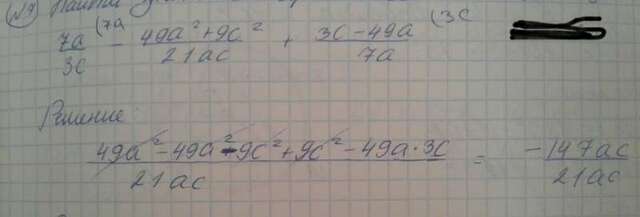 №7 Найти
7a/3c (7a - 49a²+9c²/21ac + 3c-49a/7a (3c
Решение:
49a²-49a²-9c²+9c²-49a·3c/21ac = -147ac/21ac